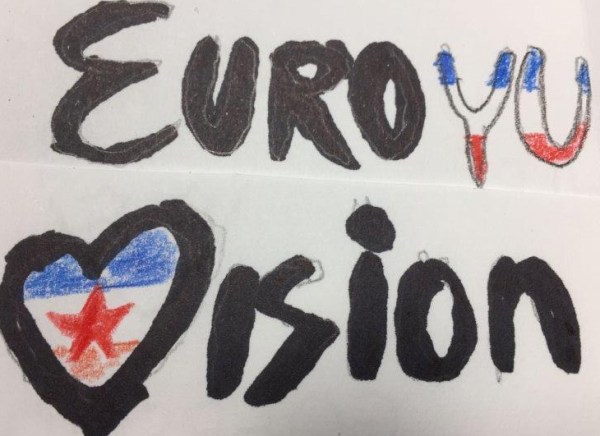 EUROYU
Vision